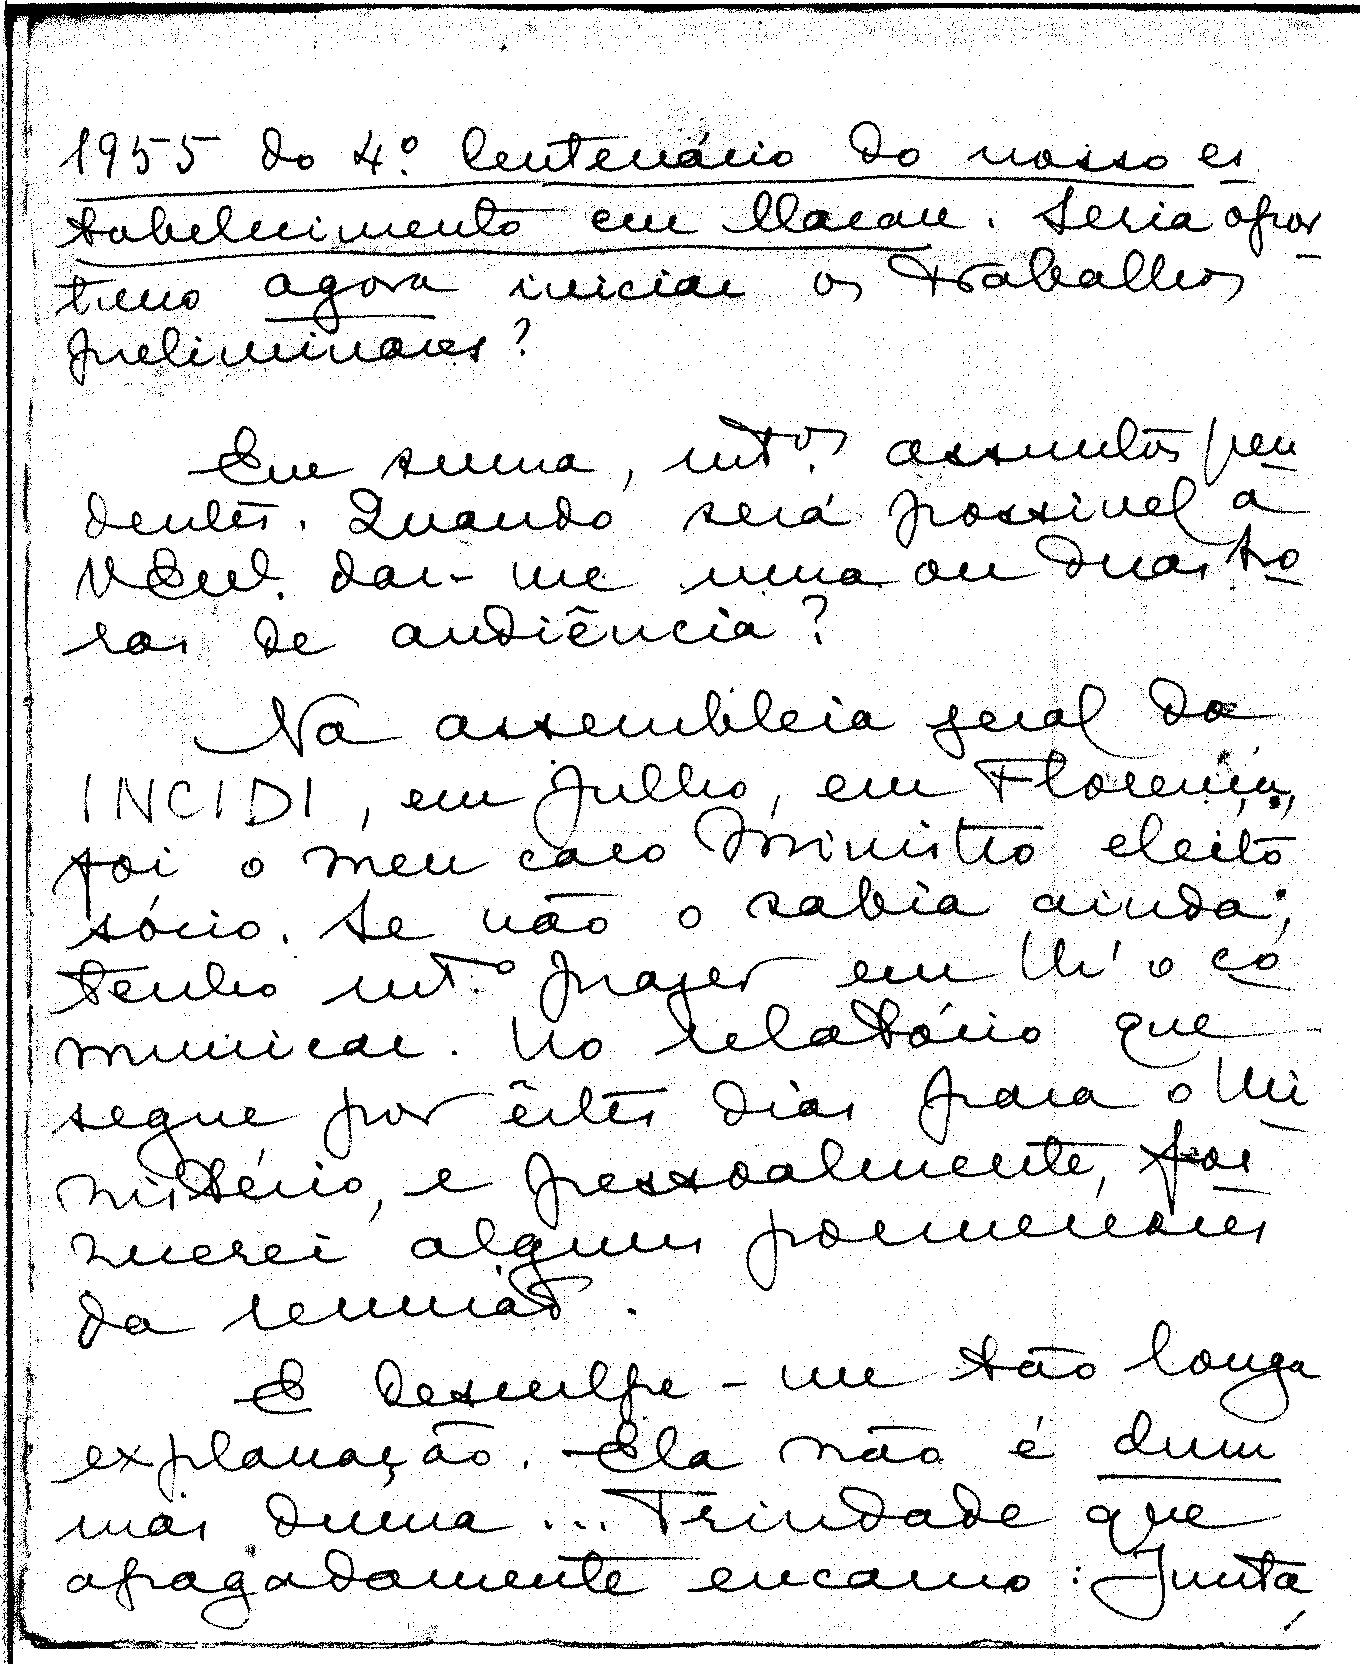 1955 do 4.º Centenário do nosso es
tabelecimento em Macau. Seria opor
tuno agora iniciar os trabalhos
preliminares?
Em suma, mt.os assuntos pen
dentes. Quando será possivel a
V Exª. dar-me uma ou duas ho
ras de audiência?
Na assembleia geral da
INCIDI, em Julho, em Florença,
foi o meu caro Ministro eleito
sócio. Se não o sabia ainda,
tenho mt.º prazer em lh'o co
municar. No relatório que
segue por êstes dias para o Mi
nistério, e pessoalmente, for
necerei alguns pormenores
da reunião.
E desculpe-me tão longa
explanação. Ela não é dum
mas duma... Trindade que
apagadamente encarno: Junta